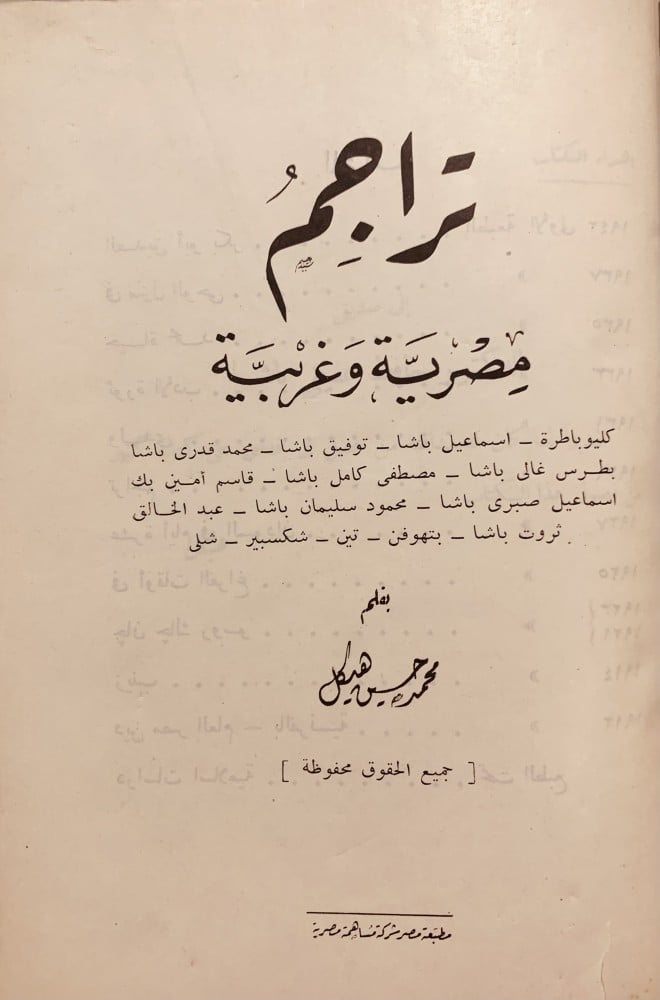 تراجمُ
مِصْرِيَّة وَغَرْبيَّة
كليوباطرة ــ اسماعيل باشا ــ توفيق باشا ــ محمد قدرى باشا
بطرس غالى باشا ــ مصطفى كامل باشا ــ قاسم أمين بك
اسماعيل صبرى باشا ــ محمود سليمان باشا ــ عبد الخالق
ثروت باشا ــ بتهوفن ــ تين ــ شكسبير ــ شلى
بقلم
محمد حسين هيكل
[ جميع الحقوق محفوظة ]
مطبعة مصر شركة مساهمة مصرية